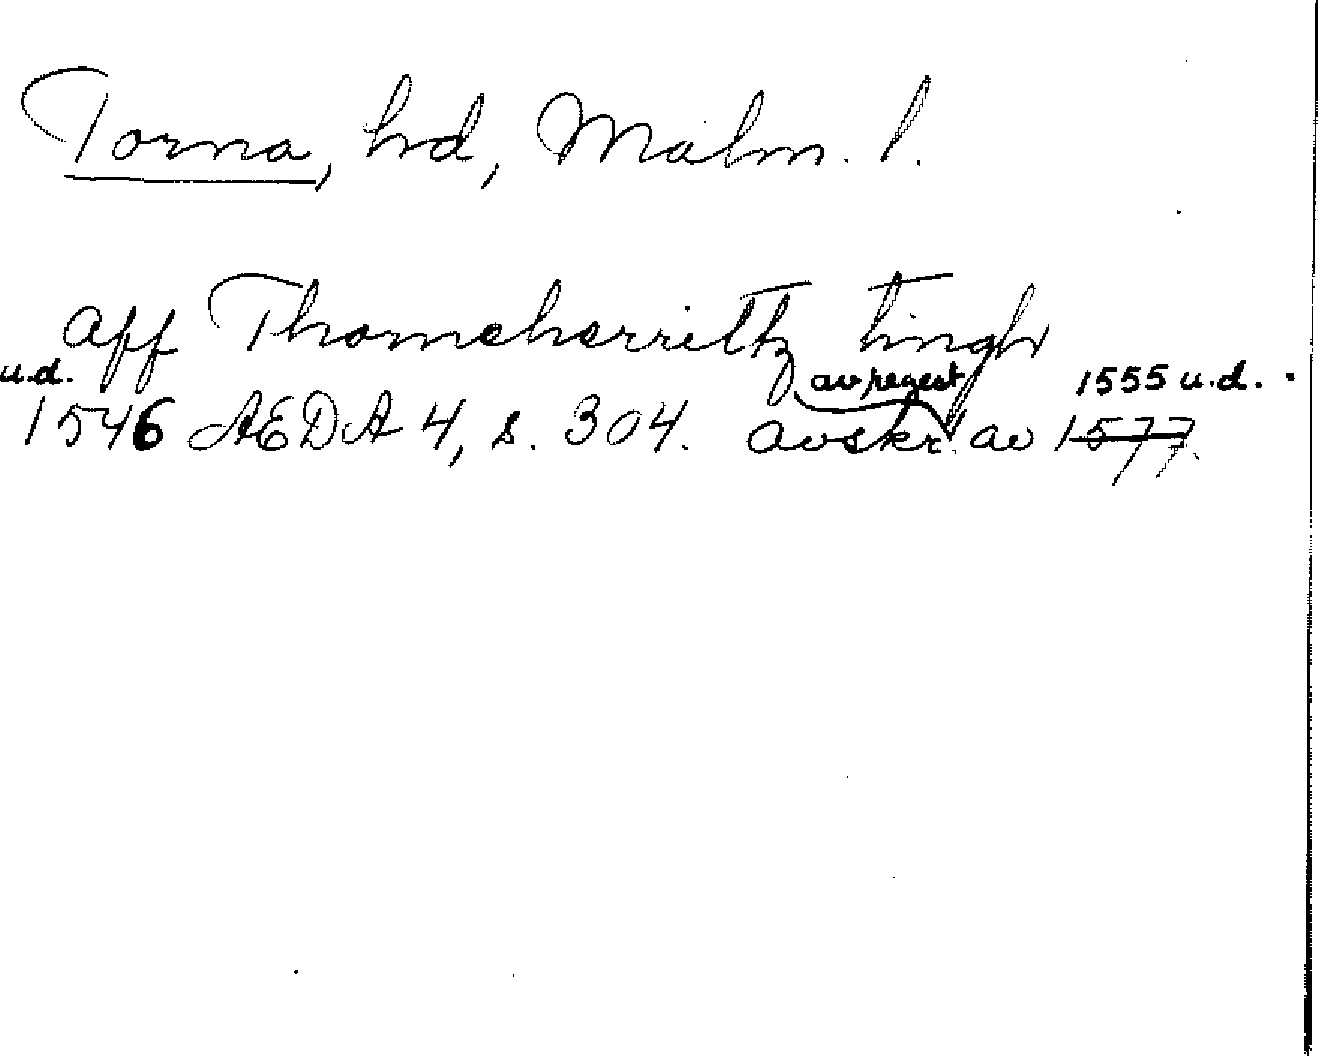 Torna, hd, Malm. l.
aff Thorneherritz tingh
u.d. av regest 1555 u.d.
1546 AEDA 4, s. 304. avskr. av 1577.